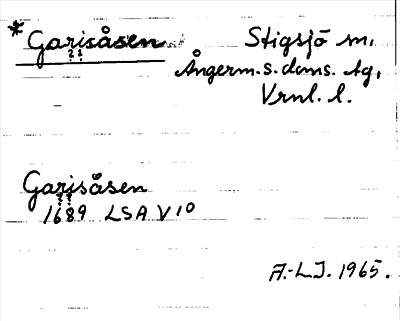 *Garisåsen Stigsjö sn.
? ?
Ångerm. s. doms. tg,
Vrnl. l.
Garisåsen
? ?
1689 LSA V 10
A.-L.J. 1965.